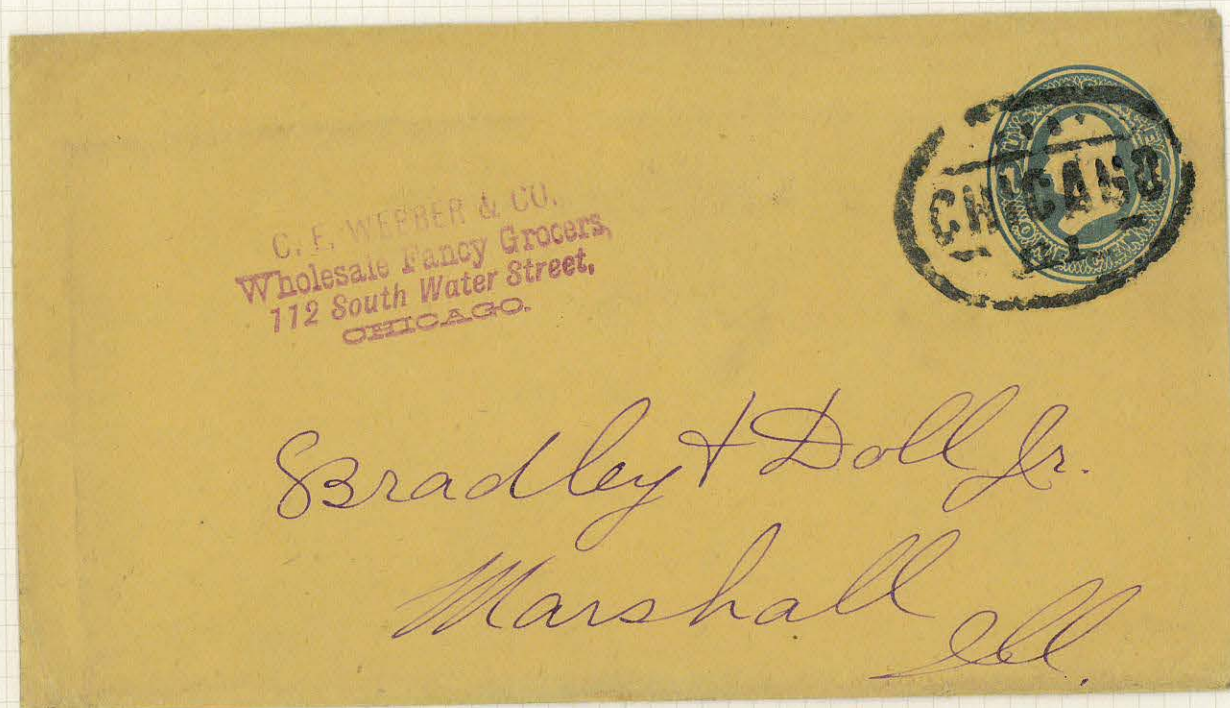 C. F. WEBBER & CO.
Wholesale Fancy Grocers,
112 South Water Street,
CHICAGO.
CHICAGO
ILL.
Bradley & Doll Jr.
Marshall
Ill.